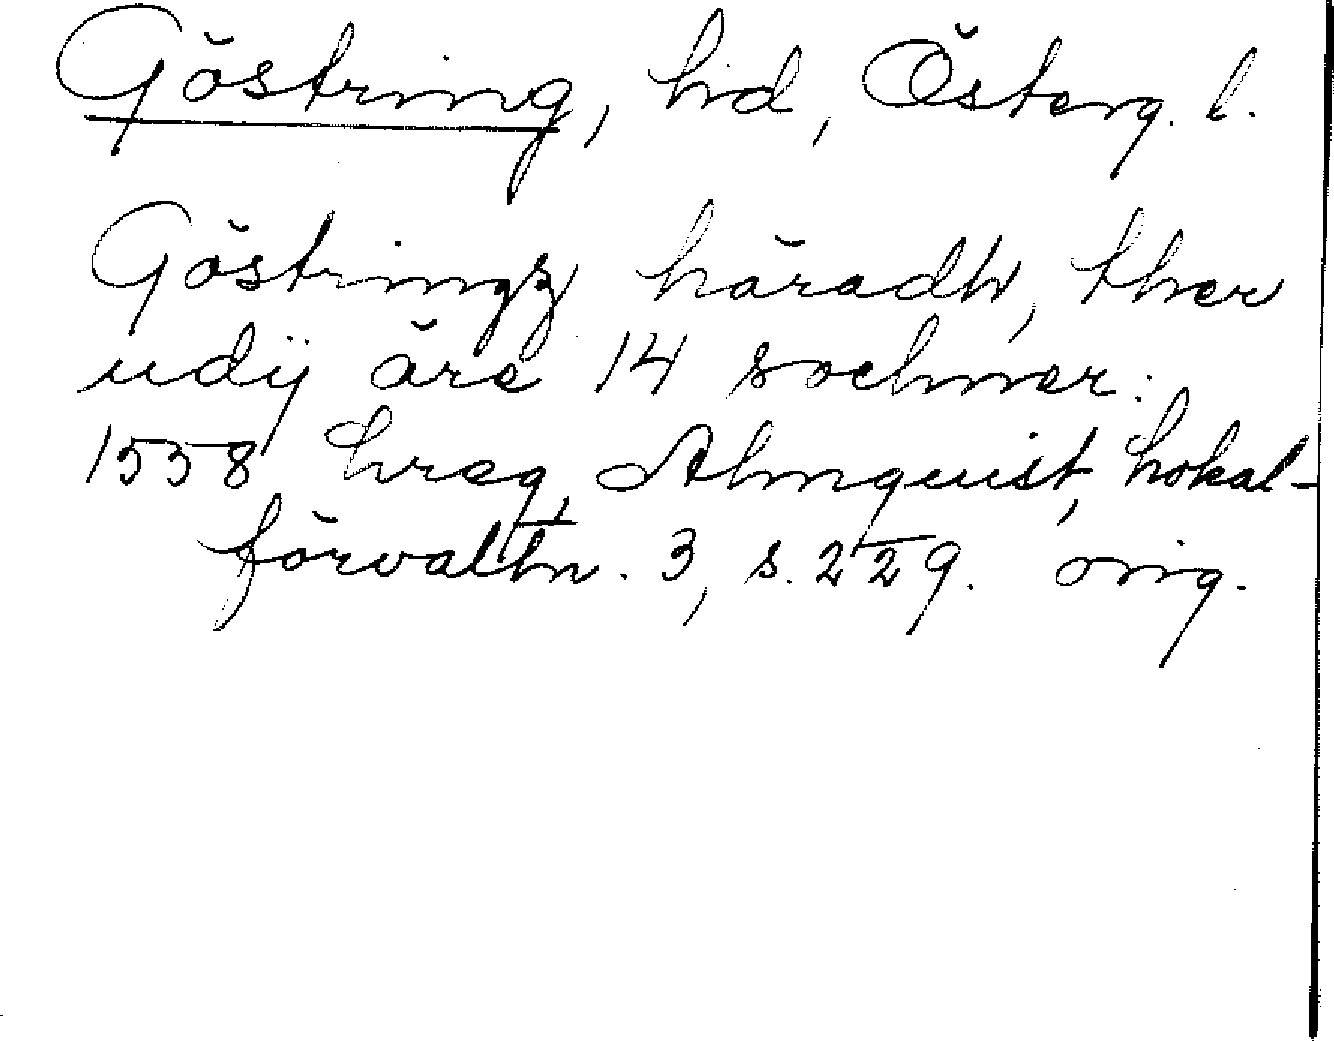 Göstring, hd, Österg. l.
Göstringz häradh, ther
udij äre 14 sochner:
1558 hreg, Almquist, Lokal-
förvaltn. 3, s. 229. orig.